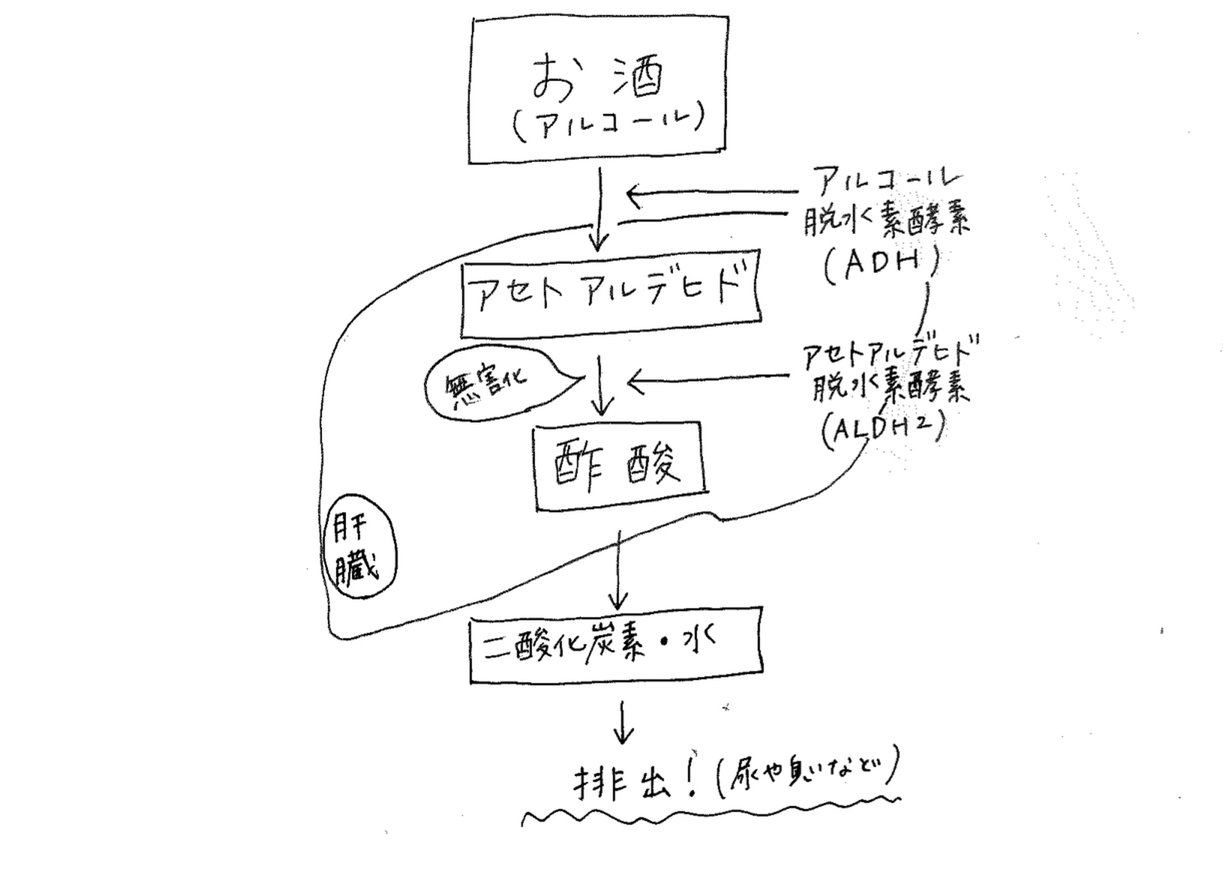 お酒
(アルコール)
アルコール
脱水素酵素
(ADH)
アセトアルデヒド
無害化
アセトアルデヒド
脱水素酵素
(ALDH2)
酢酸
肝
臓
二酸化炭素・水
排出！(尿や息など)